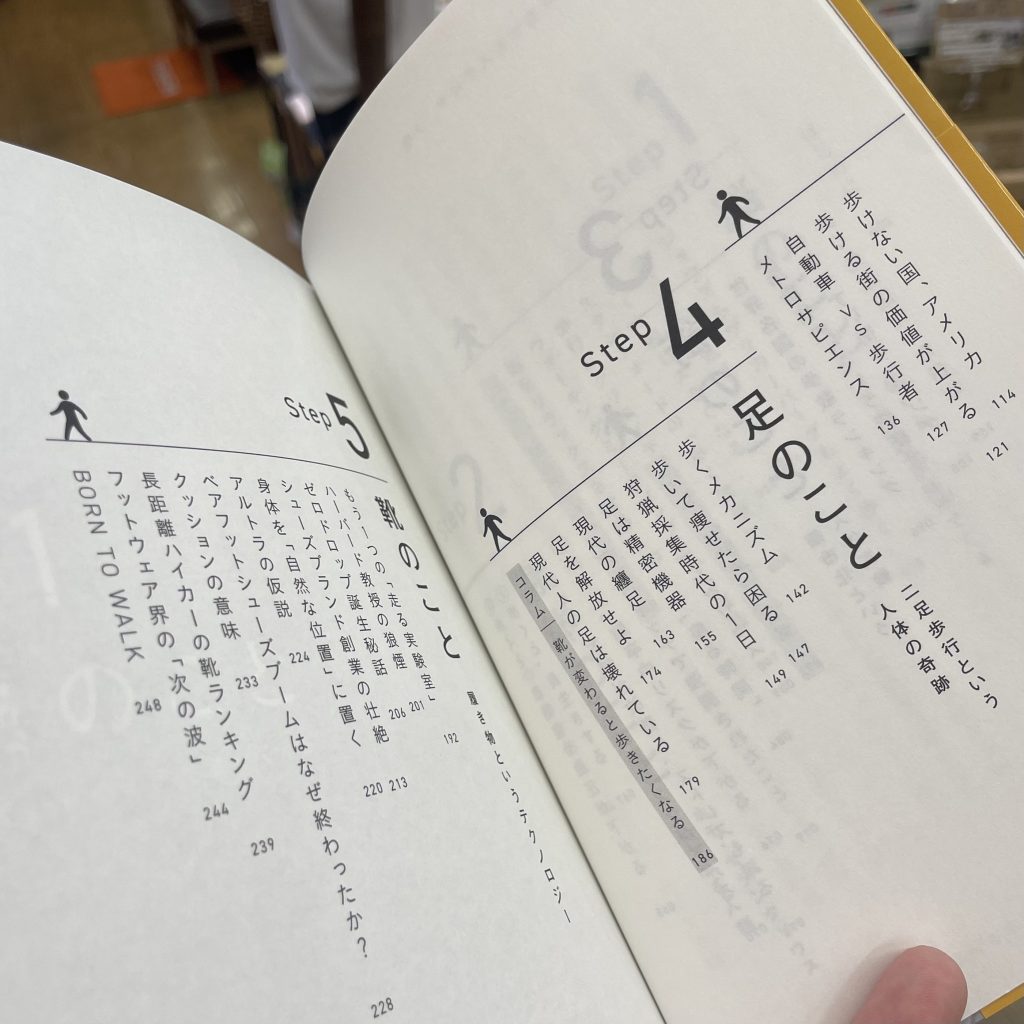 歩けない国、アメリカ 114
歩ける街の価値が上がる 121
自動車 VS 歩行者 127
メトロサピエンス 136
Step 4
足のこと
二足歩行という
人体の奇跡
歩くメカニズム 142
歩いて痩せたら困る 147
狩猟採集時代の1日 149
足は精密機器 155
現代の纏足 163
足を解放せよ 174
現代人の足は壊れている 179
コラム 靴が変わると歩きたくなる 186
Step 5
靴のこと
履き物というテクノロジー
もう一つの「走る実験室」 192
ハーバード教授の狼煙 201
ゼロドロップ誕生秘話 206
シューズブランド創業の壮絶 213
身体を「自然な位置」に置く 220
アルトラの仮説 224
ベアフットシューズブームはなぜ終わったか? 228
クッションの意味 233
長距離ハイカーの靴ランキング 239
フットウェア界の「次の波」 244
BORN TO WALK 248